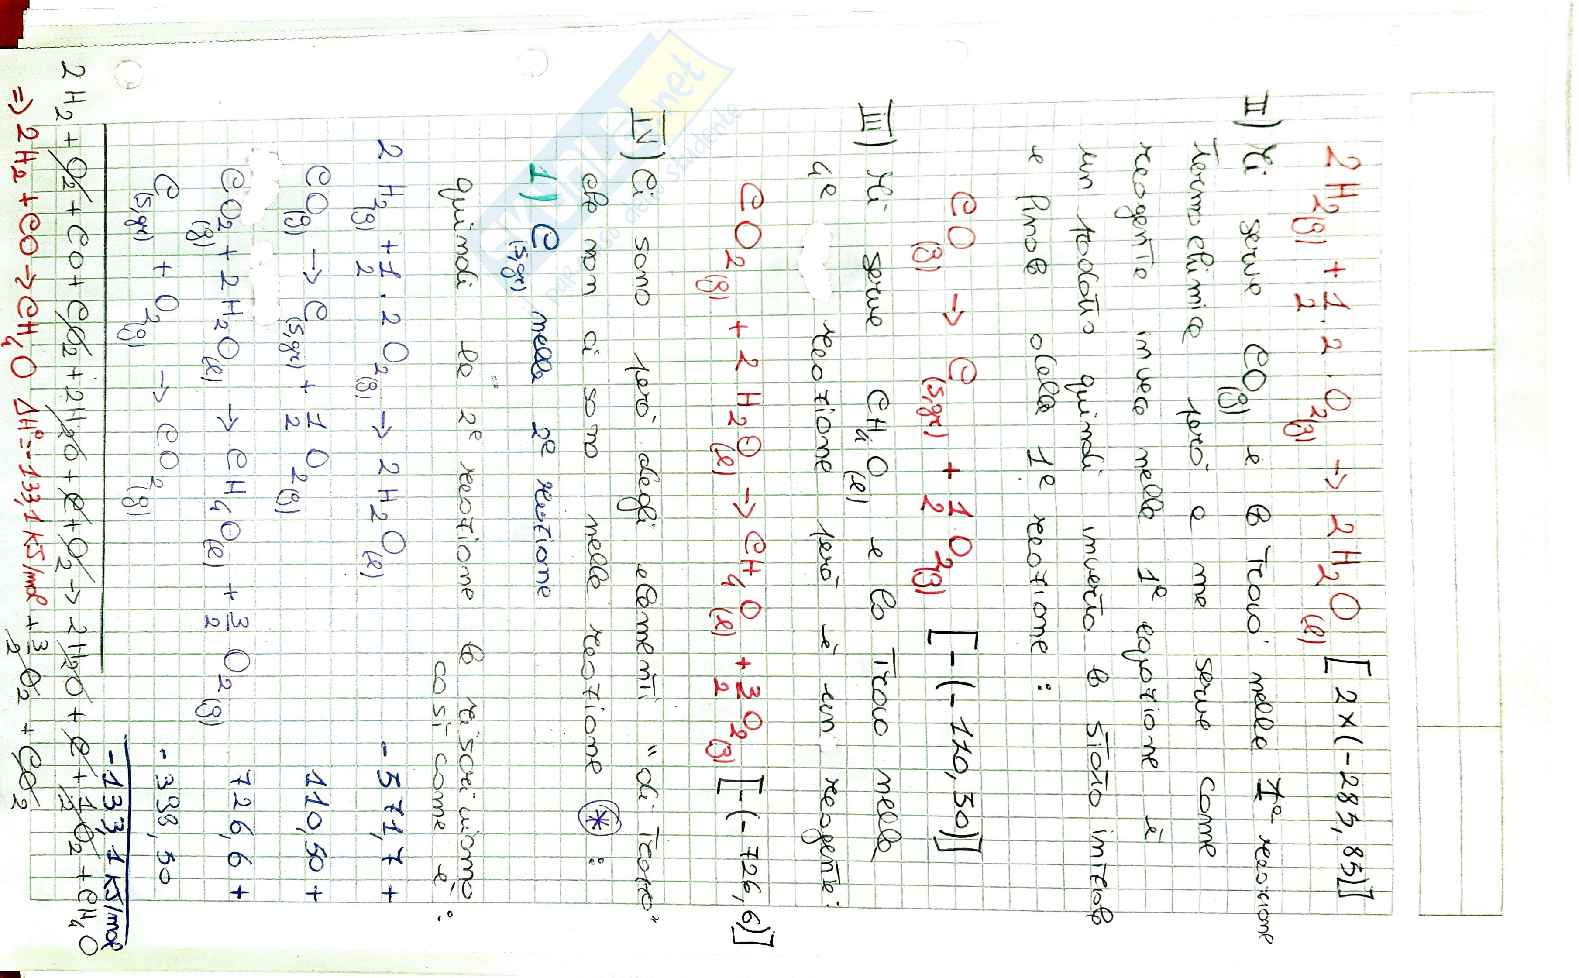 2H₂(g) + 1/2 · 2 · O₂(g) → 2H₂O(l) [2×(-285,85)]
II) Mi serve CO(g) e lo trovo nella Iª reazione
termochimica però a me serve come
reagente invece nella 1ª equazione è
un prodotto quindi inverto lo stato iniziale
e finale della 1ª reazione:
CO(g) → C(s,gr) + 1/2 O₂(g) [-(-110,50)]
III) Mi serve CH₄O(l) e lo trovo nella
4ª reazione però è un reagente:
CO₂(g) + 2H₂O(l) → CH₄O(l) + 3/2 O₂(g) [-(-726,6)]
IV) Ci sono però degli elementi "di troppo"
che non ci sono nella reazione (*):
1) C(s,gr) nella 2ª reazione
quindi la 2ª reazione la riscriviamo
così come è:
2H₂(g) + 1/2 · 2 O₂(g) → 2H₂O(l) -571,7 +
CO(g) → C(s,gr) + 1/2 O₂(g) 110,50 +
CO₂(g) + 2H₂O(l) → CH₄O(l) + 3/2 O₂(g) 726,6 +
C(s,gr) + O₂(g) → CO₂(g) -398,50
-133,1 kJ/mol
2H₂ + O₂ + CO + CO₂ + 2H₂O + C + O₂ → 2H₂O + C + 1/2 O₂ + CH₄O
+ 3/2 O₂ + CO₂
⇒ 2H₂ + CO → CH₄O ΔH° = -133,1 kJ/mol
SKUOLA.net